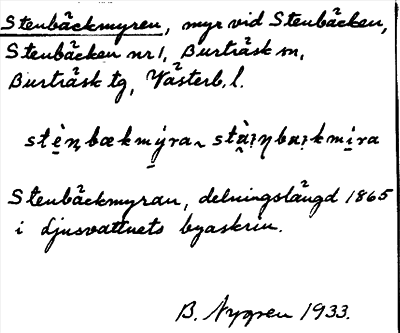 Stenbäckmyren, myr vid Stenbäcken,
Stenbäcken nr 1, Burträsk sn,
Burträsk tg, Västerb. l.
Stenbäckmyran, delningslängd 1865
i Ljusvattnets byaskrin.
B. Nygren 1933.